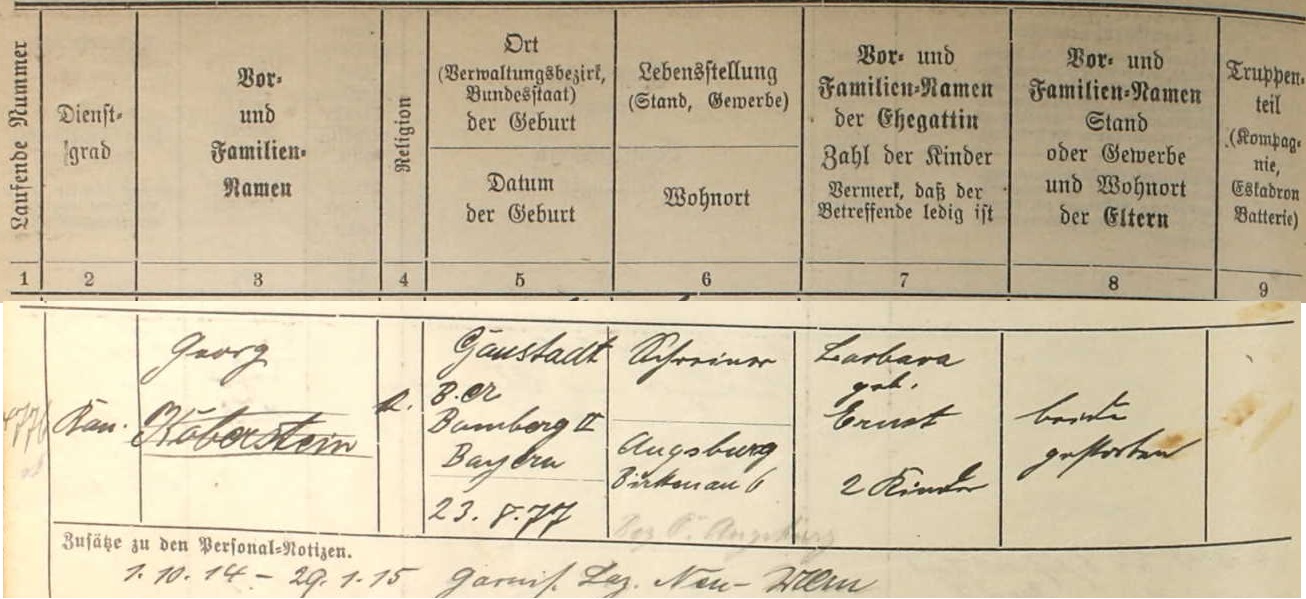 Laufende Nummer
Dienst-
grad
Vor-
und
Familien-
Namen
Religion
Ort
(Verwaltungsbezirk,
Bundesstaat)
der Geburt
Datum
der Geburt
Lebensstellung
(Stand, Gewerbe)
Wohnort
Vor- und
Familien-Namen
der Ehegattin
Zahl der Kinder
Vermerk, daß der
Betreffende ledig ist
Vor- und
Familien-Namen
Stand
oder Gewerbe
und Wohnort
der Eltern
Truppen-
teil
(Kompag-
nie,
Eskadron
Batterie)
1 2 3 4 5 6 7 8 9
Kan.
Georg
Köberstein
K.
Gaustadt
Bamberg II
Bayern
23. 8. 77
Schreiner
Augsburg
Birkenau 6
Augsburg
Barbara
geb.
Ernst
2 Kinder
beide
gestorben
Zusätze zu den Personal-Notizen.
1. 10. 14 – 29. 1. 15 Garnis. Laz. Neu-Ulm